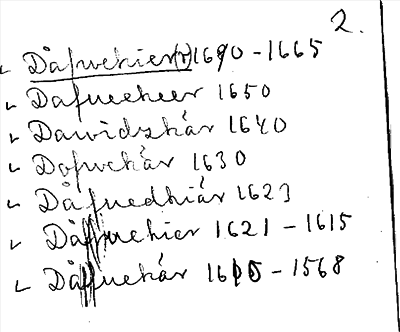 2.
Dåfwehier(r) 1690 - 1665
Dafueekeer 1650
Dawidzkär 1640
Dofwekär 1630
Dåfuedhiär 1623
Dåfuehier 1621 - 1615
Dåfuekär 1615 - 1568